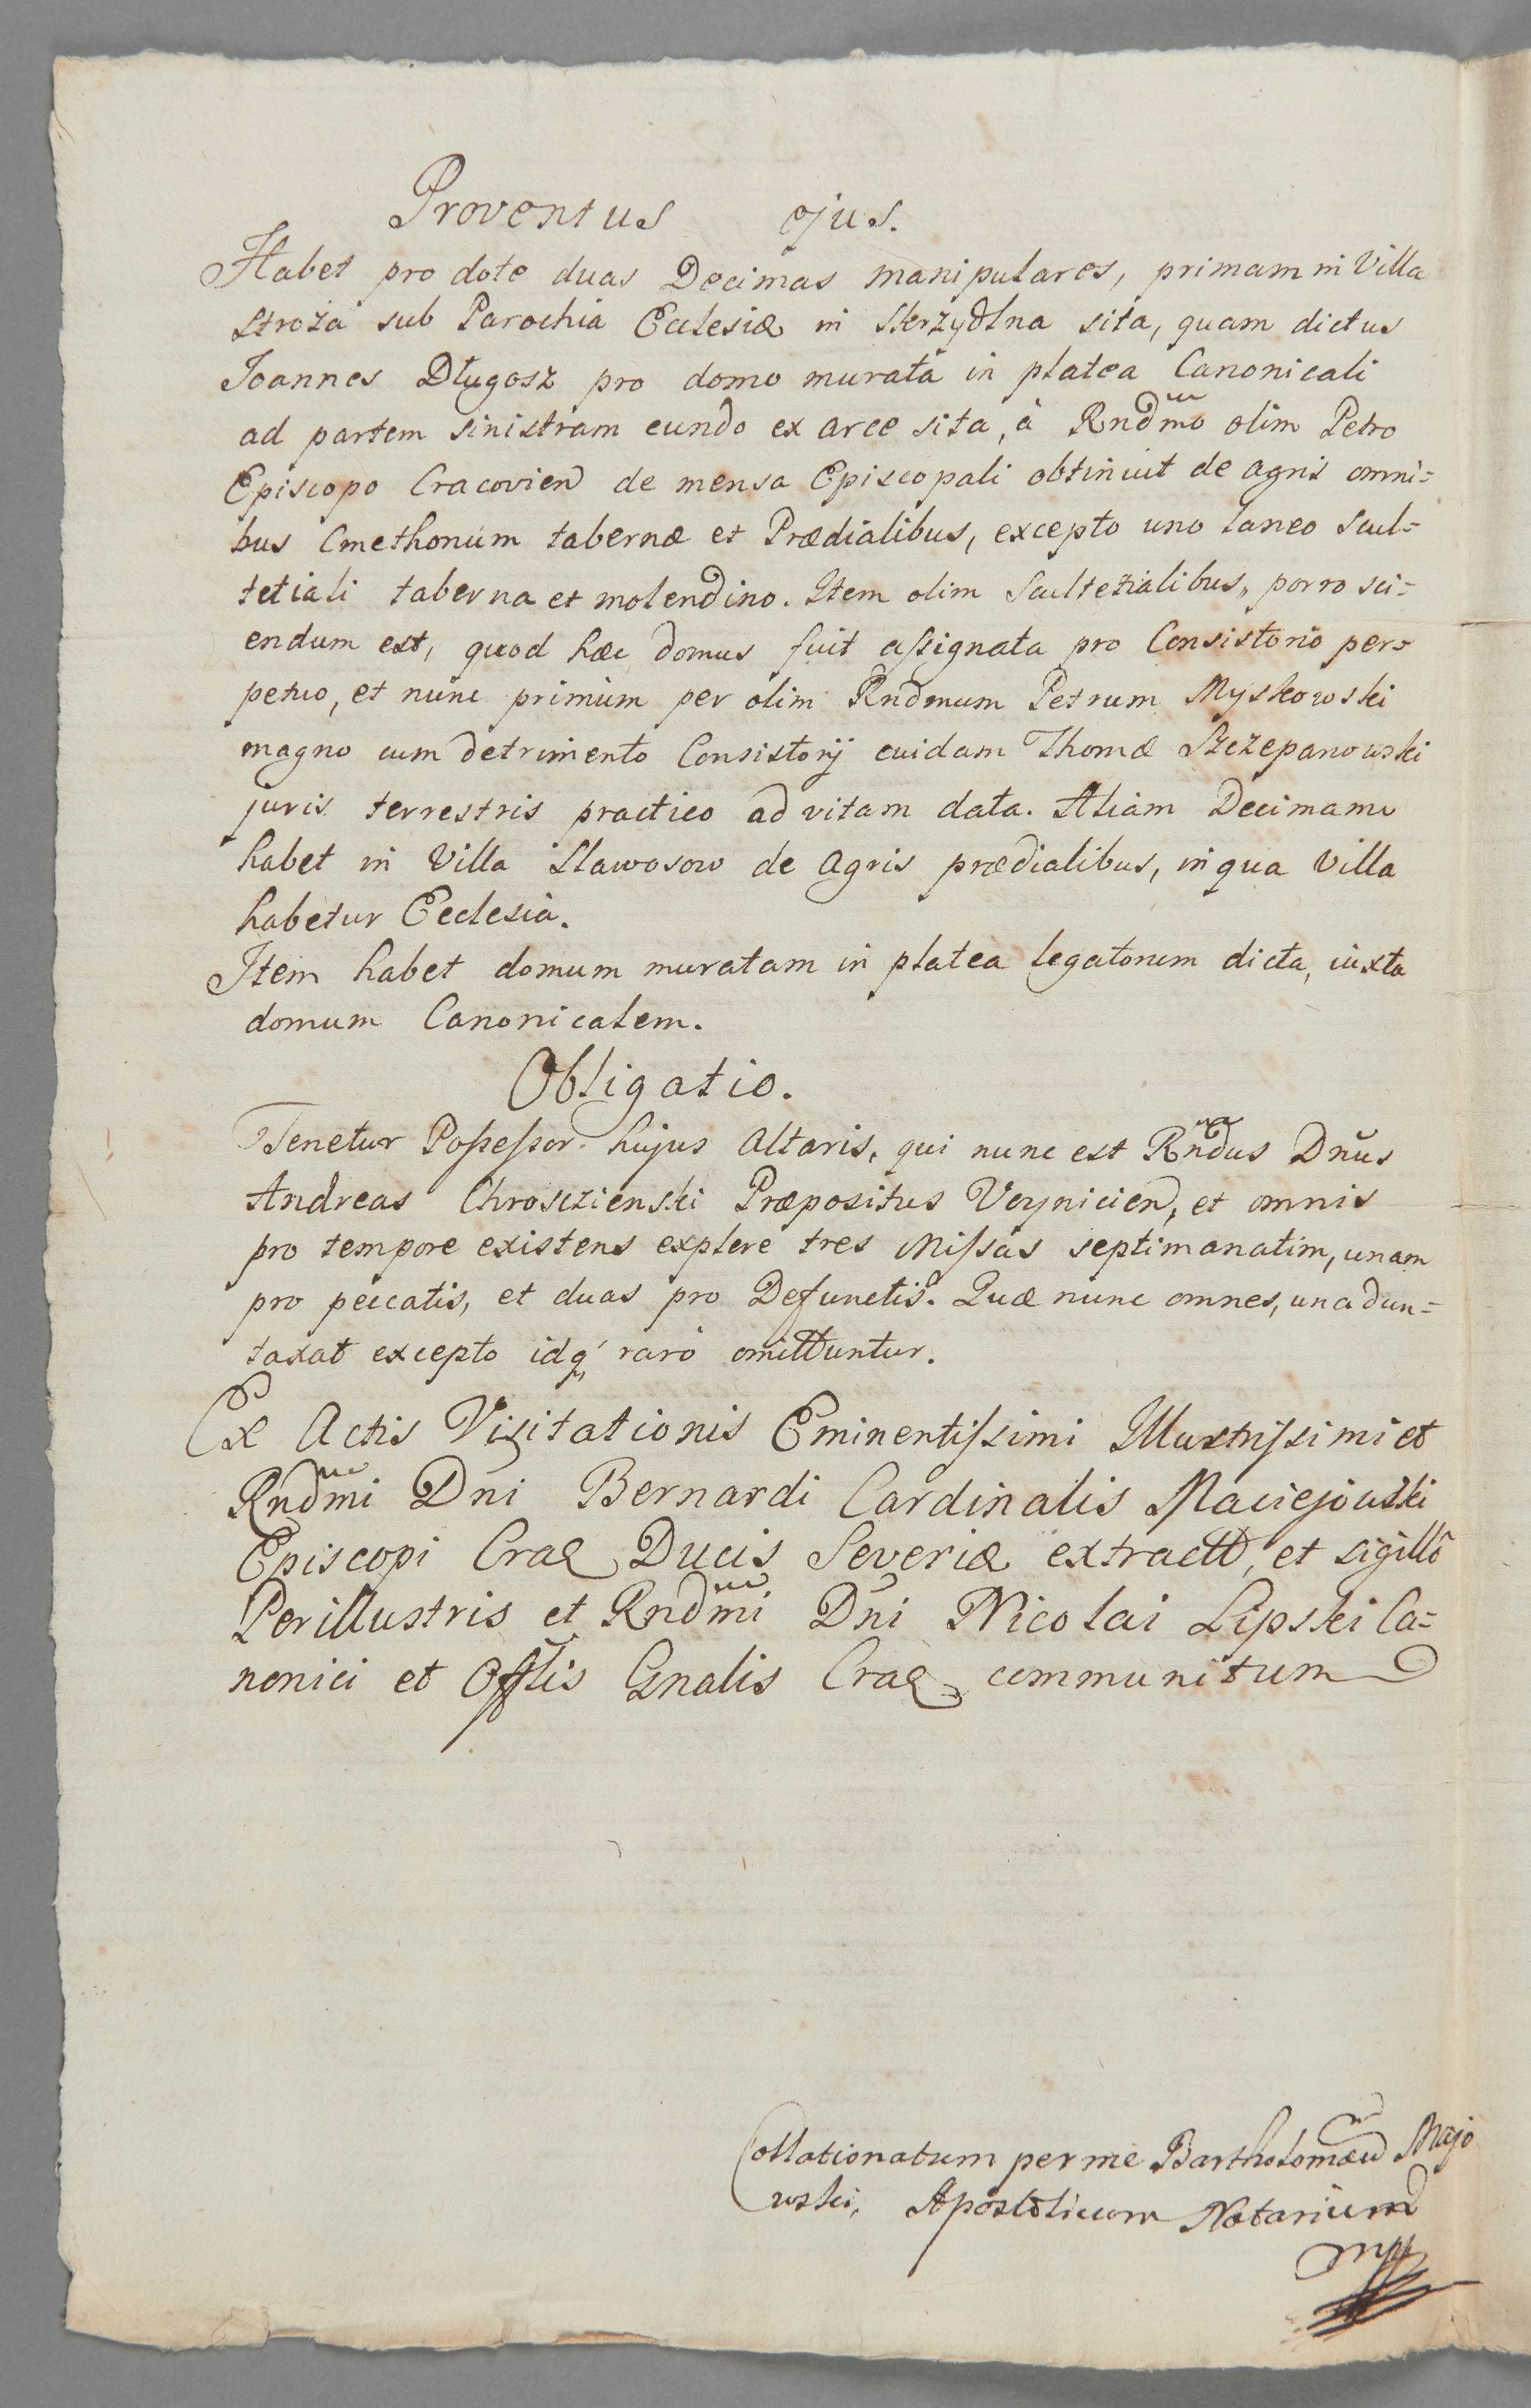 Proventus ejus.
Habet pro dote duas Decimas manipulares, primam in Villa
Stroża sub Parochia Ecclesiæ in Skrzydlna sita, quam dictus
Joannes Długosz pro domo murata in platea Canonicali
ad partem sinistram eundo ex arce sita, à Rndmo olim Petro
Episcopo Cracovien de mensa Episcopali obtinuit de agris omni=
bus Cmethonum tabernæ et Prædialibus, excepto uno laneo Scul=
tetiali taberna et molendino. Item olim Scultetialibus, porro sci=
endum est, quod hæc domus fuit assignata pro Consistorio per=
petuo, et nunc primùm per olim Rndmum Petrum Myskowski
magno cum detrimento Consistorij cuidam Thomæ Szczepanowski
juris terrestris practico ad vitam data. Aliam Decimam
habet in Villa Sławosow de Agris prædialibus, in qua Villa
habetur Ecclesia.
Item habet domum muratam in platea legatorum dicta, iuxta
domum Canonicalem.
Obligatio.
Tenetur Possessor hujus Altaris, qui nunc est Rndus Dnus
Andreas Chrosczienski Præpositus Voynicien, et omnis
pro tempore existens explere tres Missas septimanatim, unam
pro peccatis, et duas pro Defunctis. Quæ nunc omnes, una dun=
taxat excepto idq raro omittuntur.
Ex Actis Visitationis Eminentissimi Illustrissimi et
Rndmi Dni Bernardi Cardinalis Maciejowski
Episcopi Crac Ducis Severiæ extract, et sigillo
Perillustris et Rndmi Dni Nicolai Lipski Ca=
nonici et Offlis Gnalis Crac communitum
Collationatum per me Bartholomæu Majo
wski, Apostolicum Notarium
mp